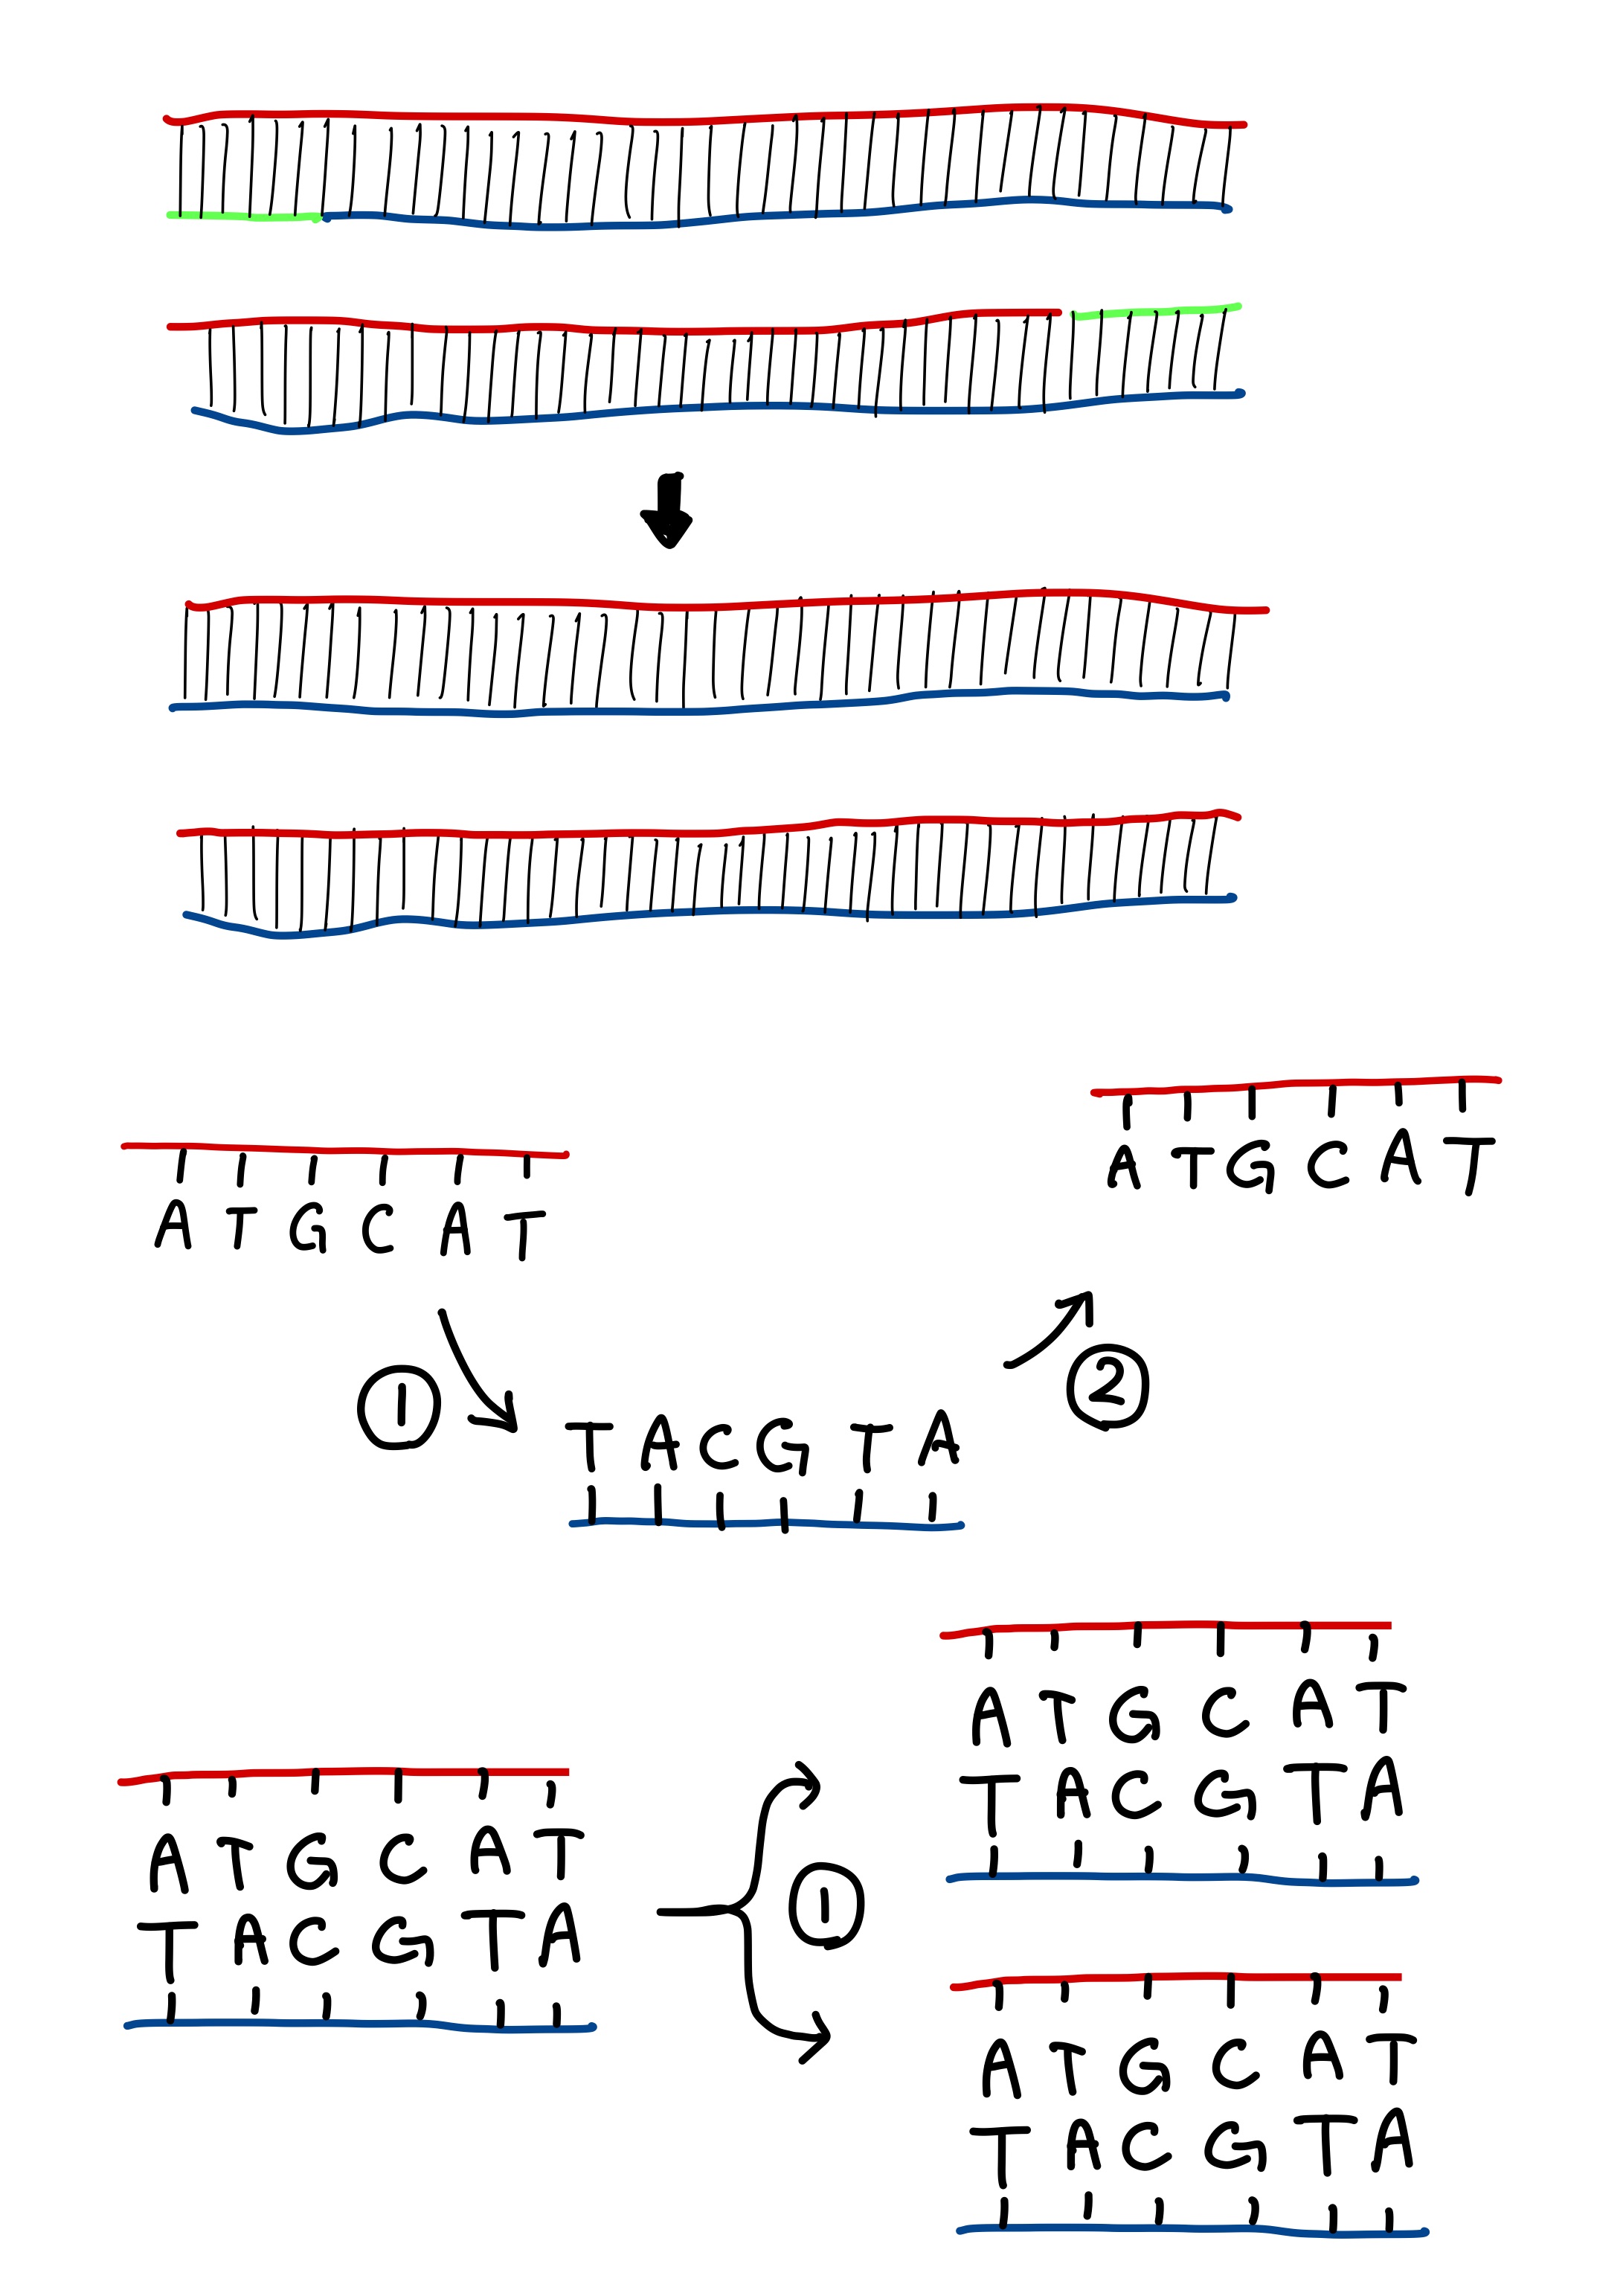 A T G C A T
A T G C A T
①
②
T A C G T A
A T G C A T
T A C G T A
①
A T G C A T
T A C G T A
A T G C A T
T A C G T A